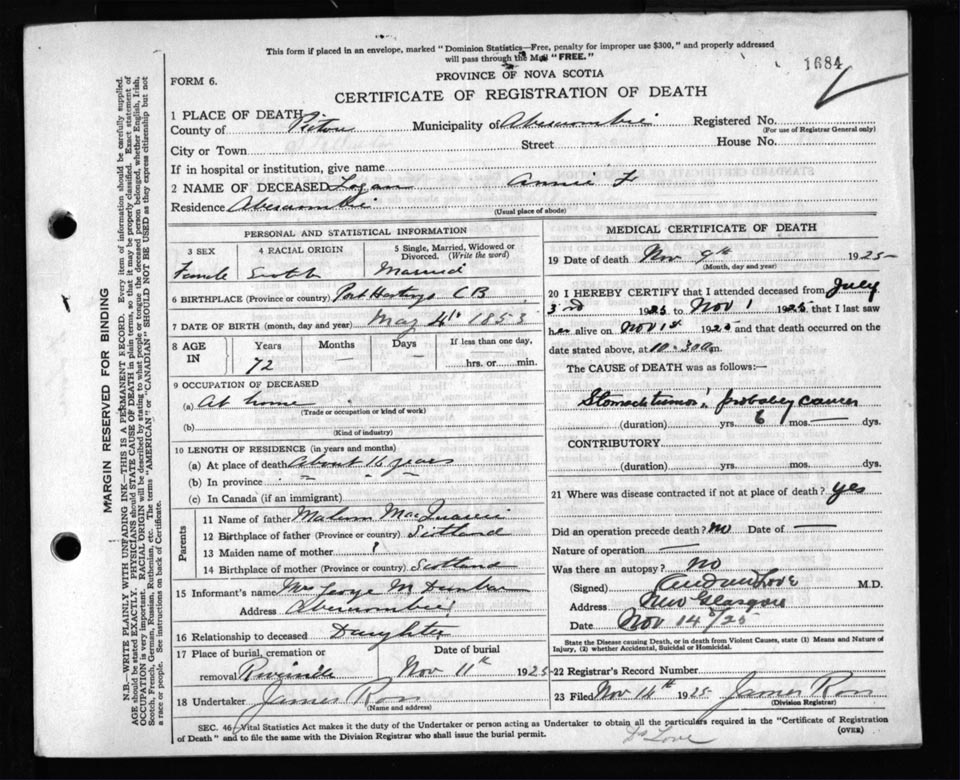 This form if placed in an envelope, marked "Dominion Statistics—Free, penalty for improper use $300," and properly addressed
will pass through the Mail "FREE."
1684
PROVINCE OF NOVA SCOTIA
FORM 6.
CERTIFICATE OF REGISTRATION OF DEATH
1 PLACE OF DEATH
County of Pictou Municipality of Abercrombie Registered No.
(For use of Registrar General only)
City or Town Street House No.
If in hospital or institution, give name
2 NAME OF DECEASED Logan Annie F
Residence Abercrombie
(Usual place of abode)
PERSONAL AND STATISTICAL INFORMATION
3 SEX 4 RACIAL ORIGIN 5 Single, Married, Widowed or Divorced. (Write the word)
Female Scotch Married
6 BIRTHPLACE (Province or country) Port Hastings C B
7 DATE OF BIRTH (month, day and year) May 4th 1853
8 AGE IN Years Months Days If less than one day,
72 — — hrs. or min.
9 OCCUPATION OF DECEASED
(a) At home
(Trade or occupation or kind of work)
(b)
(Kind of industry)
10 LENGTH OF RESIDENCE (in years and months)
(a) At place of death About 15 years
(b) In province " "
(c) In Canada (if an immigrant)
Parents
11 Name of father MacQuarrie
12 Birthplace of father (Province or country) Scotland
13 Maiden name of mother ?
14 Birthplace of mother (Province or country) Scotland
15 Informant's name Mrs George M Dunbar
Address Abercrombie
16 Relationship to deceased Daughter
17 Place of burial, cremation or removal Date of burial
Riverside Nov 11th 1925
18 Undertaker James Ross
(Name and address)
MEDICAL CERTIFICATE OF DEATH
19 Date of death Nov 9th 1925
(Month, day and year)
20 I HEREBY CERTIFY that I attended deceased from July
3rd 1925 to Nov 1 1925 that I last saw
her alive on Nov 1st 1925 and that death occurred on the
date stated above, at 10.30 a m.
The CAUSE of DEATH was as follows:—
Stomach tumor, probably cancer
(duration) yrs. 6 mos. — dys.
CONTRIBUTORY
(duration) yrs. mos. dys.
21 Where was disease contracted if not at place of death? yes
Did an operation precede death? no Date of —
Nature of operation —
Was there an autopsy? no
(Signed) Andrew Love M.D.
Address New Glasgow
Date Nov 14/25
State the Disease causing Death, or in death from Violent Causes, state (1) Means and Nature of Injury, (2) whether Accidental, Suicidal or Homicidal.
22 Registrar's Record Number
23 Filed Nov 14th 1925 James Ross
(Division Registrar)
SEC. 46, Vital Statistics Act makes it the duty of the Undertaker or person acting as Undertaker to obtain all the particulars required in the "Certificate of Registration
of Death" and to file the same with the Division Registrar who shall issue the burial permit.
(OVER)
Dr Love
MARGIN RESERVED FOR BINDING
N.B.—WRITE PLAINLY WITH UNFADING INK—THIS IS A PERMANENT RECORD. Every item of information should be carefully supplied.
AGE should be stated EXACTLY. PHYSICIANS should STATE CAUSE OF DEATH in plain terms, so that it may be properly classified. Exact statement of
OCCUPATION is very important. RACIAL ORIGIN will be described by stating to what people or tongue the deceased person belonged, whether English, Irish,
Scotch, French, German, Russian, Ruthenian, etc. The terms "AMERICAN" or "CANADIAN" SHOULD NOT BE USED as they express citizenship but not
a race or people. See instructions on back of Certificate.